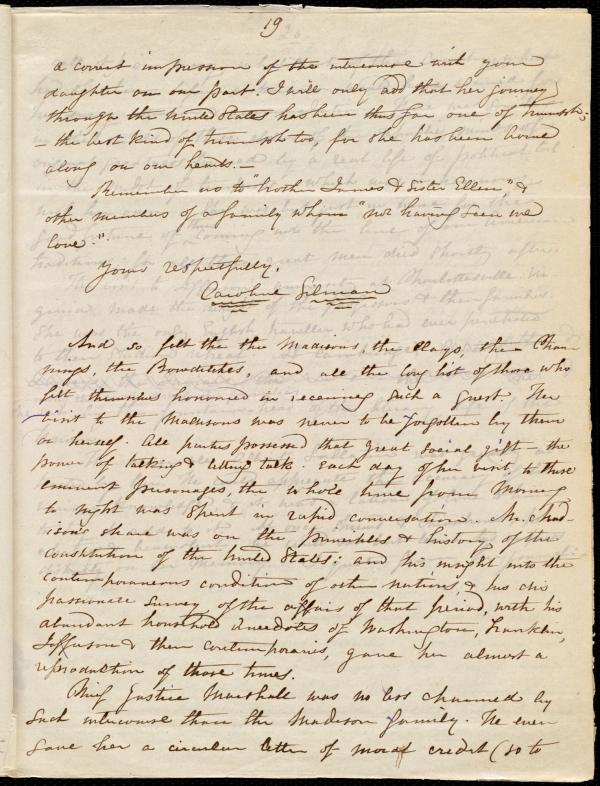 19
a correct impression of the intercourse with your
daughter on our part. I will only add that her journey
through the United States has been thus far one of triumph;
– the best kind of triumph too, for she has been borne
along on our hearts.—
Remember us to "brother James & Sister Ellen" &
other members of a family whom "not having seen we
love."
Yours respectfully,
Caroline Gilman
And so felt the the Madisons, the Clays, the Chan-
nings, the Bowditches, and all the long list of those who
felt themselves honoured in receiving such a guest. Her
visit to the Madisons was never to be forgotten by them
or herself. All parties possessed that great social gift – the
power of talking & letting talk. Each day of her visit, to these
eminent personages, the whole time from Morning
to night was spent in rapid conversation. Mr. Mad-
ison's share was on the principles & history of the
Constitution of the United States: and his insight into the
contemporaneous condition of other nations, & his dis
passionate survey of the affairs of that period, with his
abundant household anecdotes of Washington, Franklin,
Jefferson & their contemporaries, gave her almost a
reproduction of those times.
Chief Justice Marshall was no less charmed by
such intercourse than the Madison family. He even
gave her a circular letter of moral credit (so to